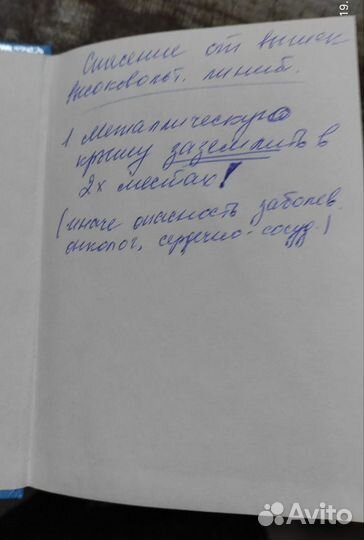 Спасение от вышек
высоковольт. линий.
1 Металлическую
крышу заземлить в
2х местах!
(иначе опасность заболев.
онколог, сердечно-сосуд.)
19.
Avito